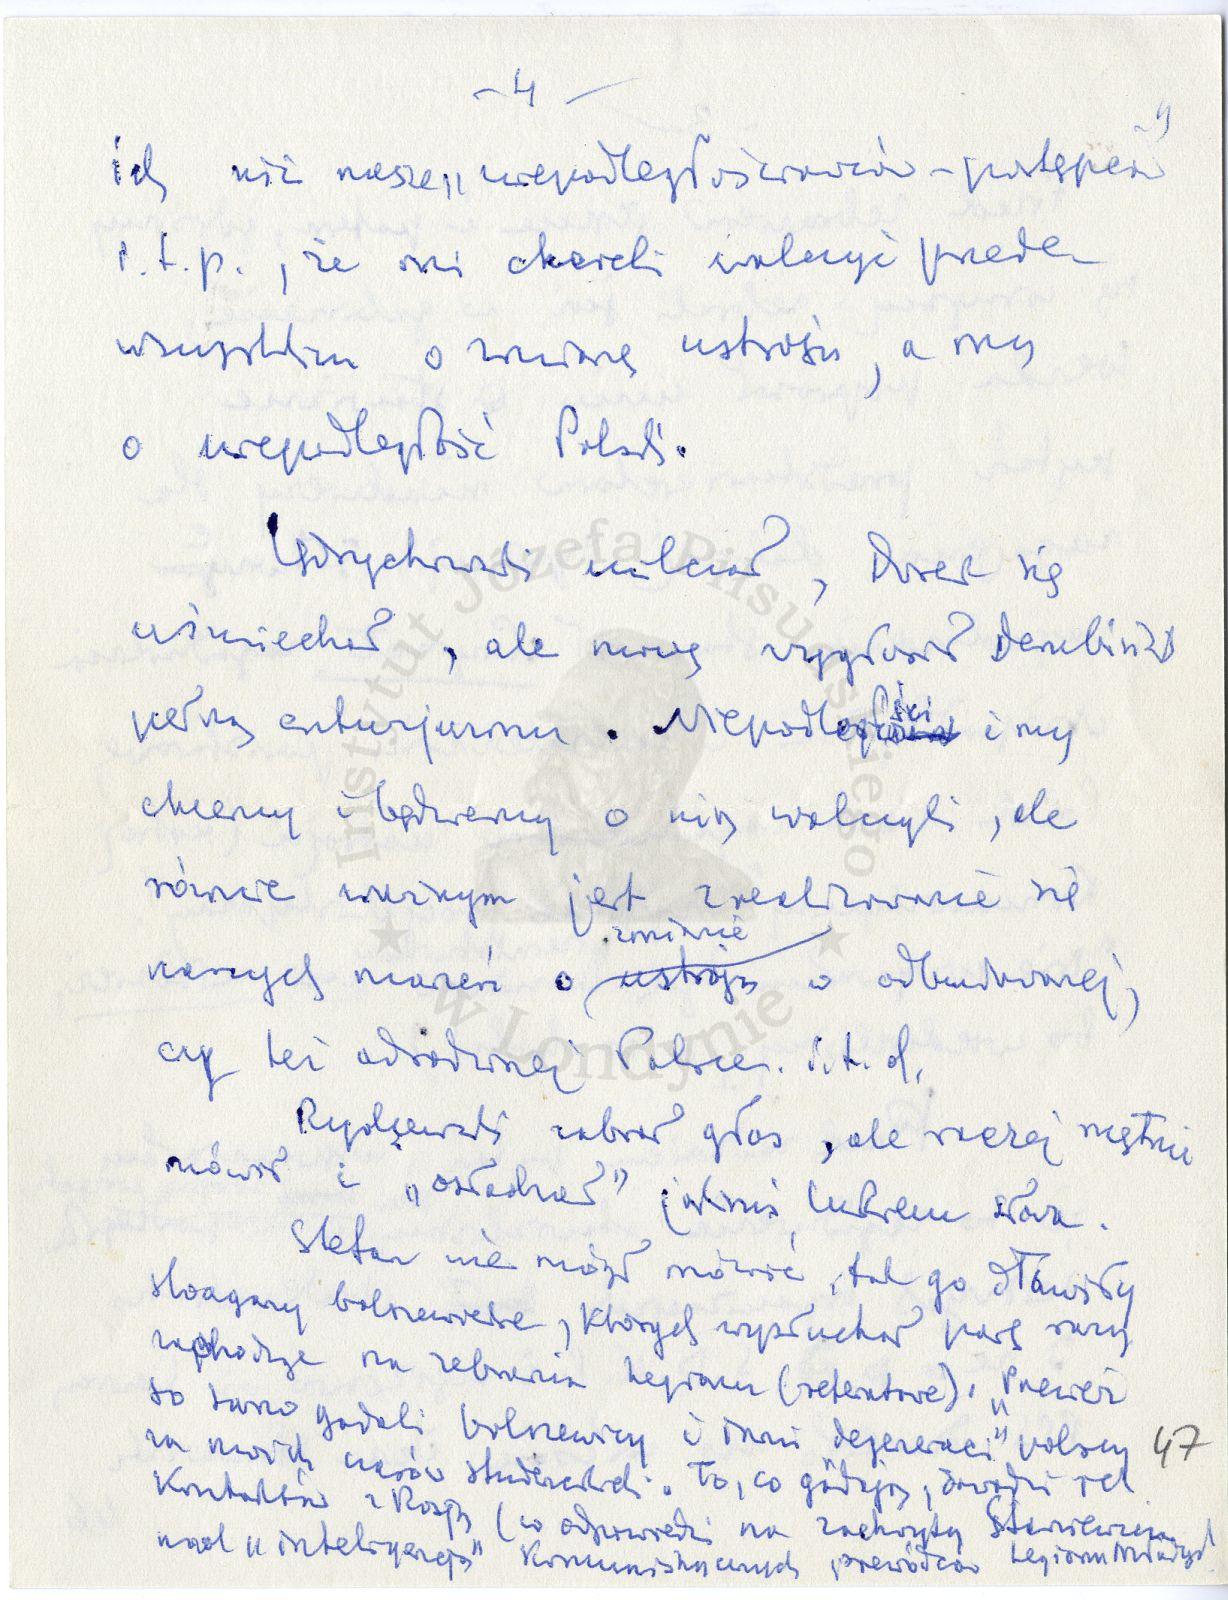 - 4 -
ich niż nasze „niepodległościowców - postępców"
i.t.p., że oni chcieli walczyć przede
wszystkim o zmianę ustroju, a my
o niepodległość Polski.
milczał, Dusek się
uśmiechał, ale mowę wygłosił Dembiński
pełną enturjazmu. Niepodległości i my
chcemy i będziemy o nią walczyli, ale
równie ważnym jest zrealizowanie się
naszych marzeń o zmianie ustroju w odbudowanej,
czy też odrodzonej Polsce. i.t.d.
zabrał głos, ale raczej mętnie
mówił i „osładzał" jakimś lukrem słowa.
Stefan nie mógł mówić, tak go dławiły
slogany bolszewickie, których wysłuchał parę razy
zachodząc na zebrania Legionu (referatowe). „Przecież
to samo gadali bolszewicy i inni degeneraci" polscy
za moich czasów studenckich. To, co gadają, dowodzi ich
kontaktów z Rosją (w odpowiedzi na zachwyty Staniewicza
nad „inteligencją" komunistycznych przewódców Legionu Młodych.
47
Instytut Józefa Piłsudskiego
w Londynie